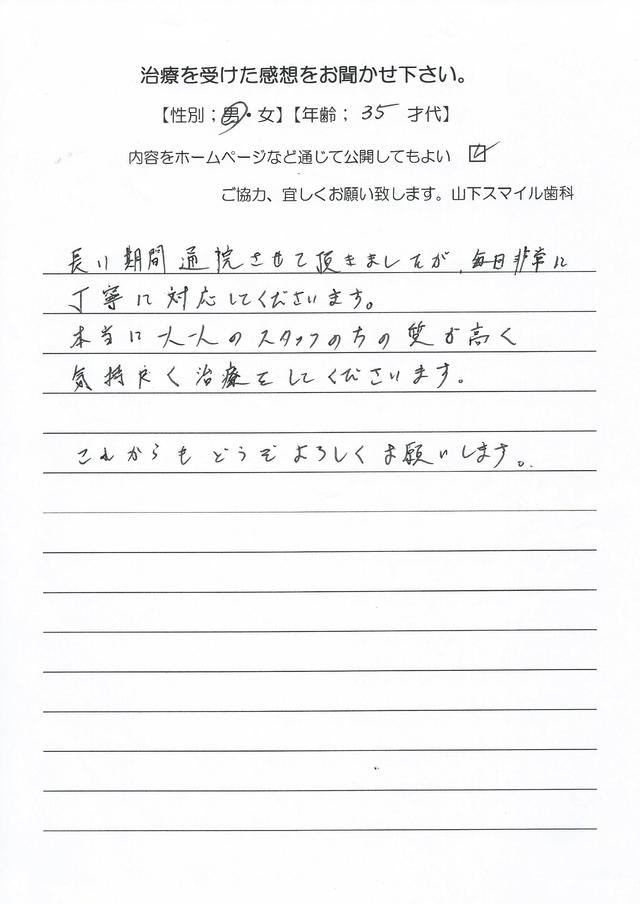 治療を受けた感想をお聞かせ下さい。
【性別；男・女】【年齢；35才代】
内容をホームページなど通じて公開してもよい ☑
ご協力、宜しくお願い致します。山下スマイル歯科
長い期間通院させて頂きましたが、毎日非常に
丁寧に対応してくださいます。
本当に一人一人のスタッフの方の質が高く
気持良く治療をしてくださいます。
これからもどうぞよろしくお願いします。